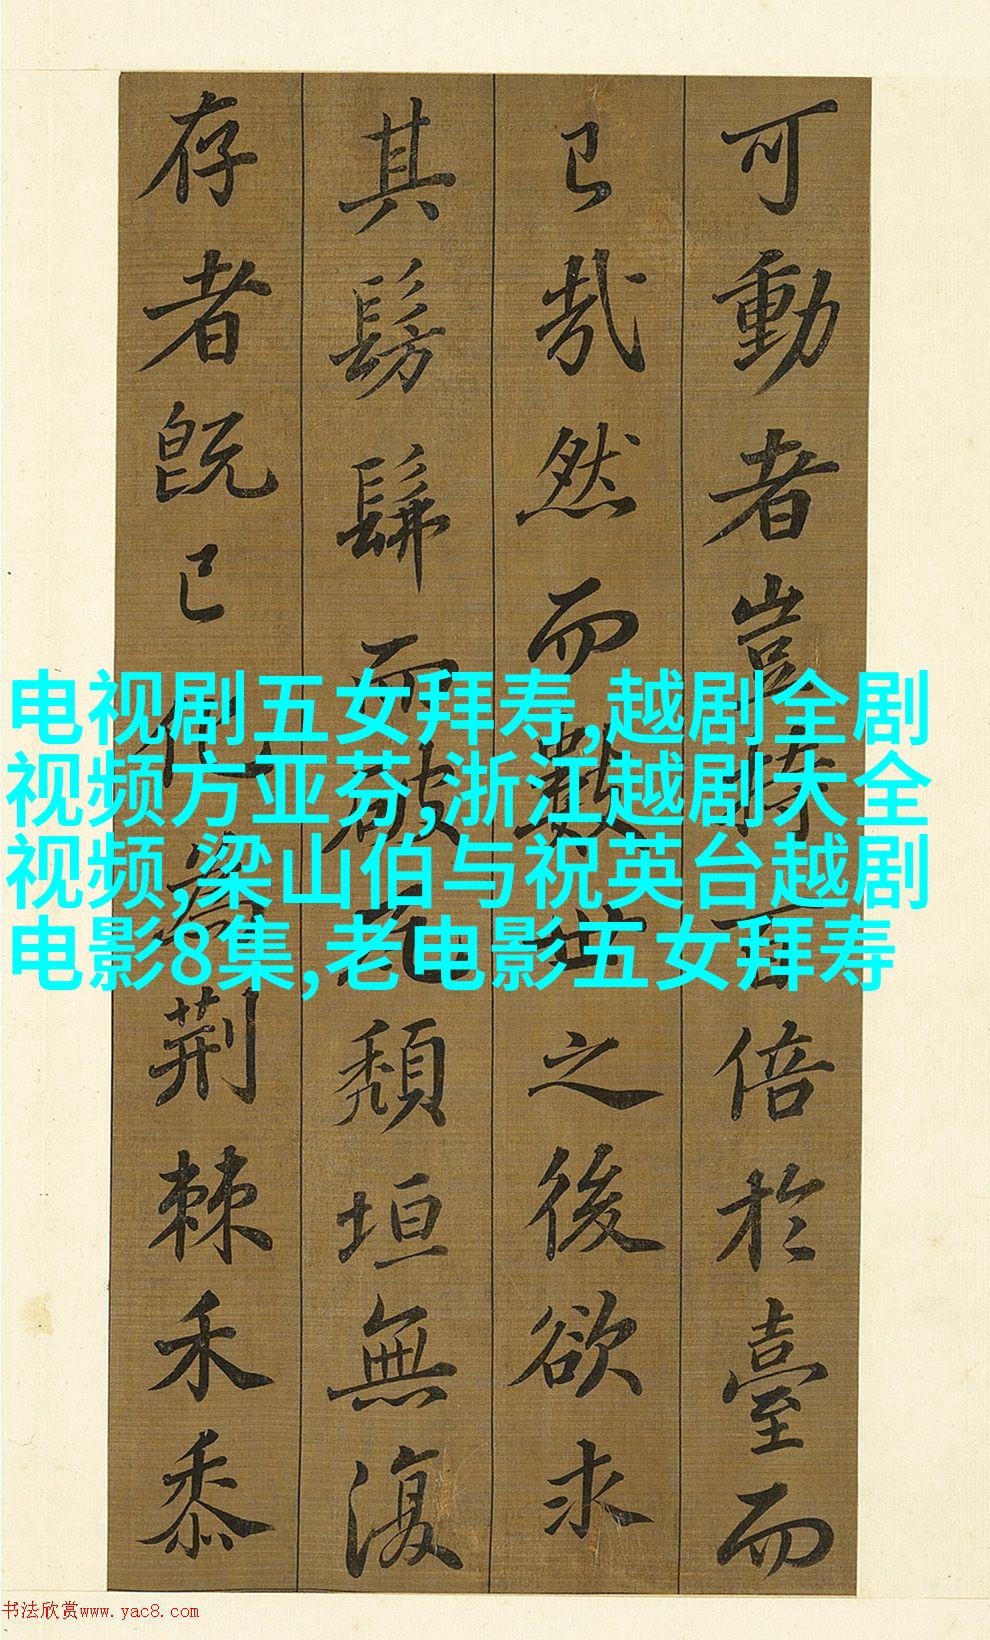 可動者豈特百倍於臺而
已哉然而數世之後欲求
其髣髴而破瓦頹垣無復
存者既已化為荆棘禾黍
电视剧五女拜寿,越剧全剧
视频方亚芬,浙江越剧大全
视频,梁山伯与祝英台越剧
电影8集,老电影五女拜寿
书法欣赏www.yac8.com